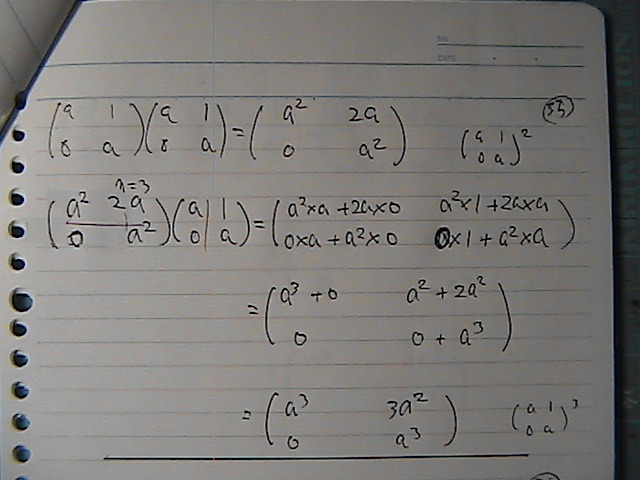 No.
DATE
(a 1 / 0 a)(a 1 / 0 a) = (a² 2a / 0 a²) (a 1 / 0 a)²
n=3
(a² 2a / 0 a²)(a 1 / 0 a) = (a²×a+2a×0 a²×1+2a×a / 0×a+a²×0 0×1+a²×a)
= (a³+0 a²+2a² / 0 0+a³)
= (a³ 3a² / 0 a³) (a 1 / 0 a)³